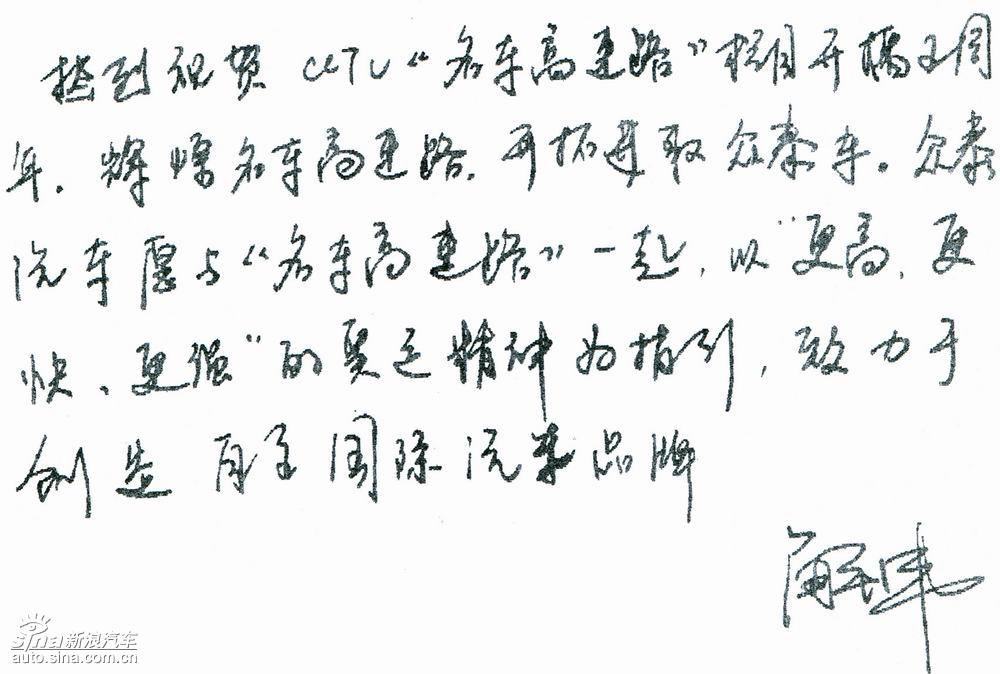 热烈祝贺 CCTV“名车高速路”栏目开播五周
年。辉煌名车高速路,开拓进取众泰车。众泰
汽车愿与“名车高速路”一起,以“更高、更
快、更强”的奥运精神为指引,致力于
创造自主国际汽车品牌
解
sina 新浪汽车
auto.sina.com.cn